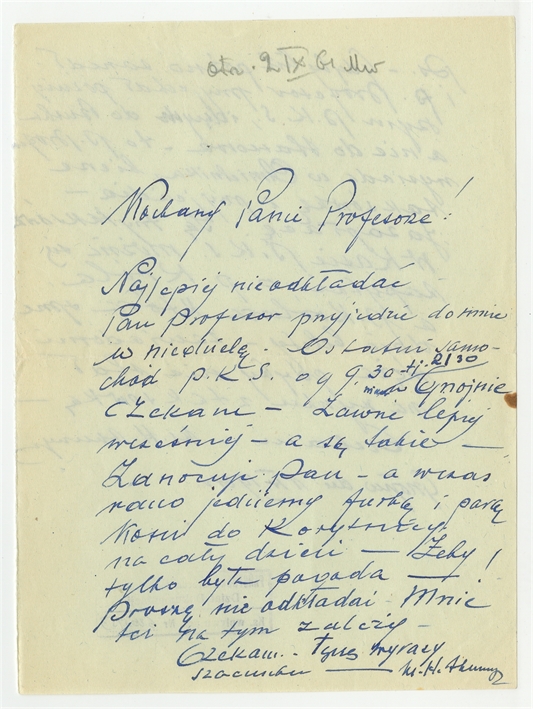 otr. 2 IX 61 Mw
Kochany Panie Profesorze!
Najlepiej nie odkładać
Pan Profesor przyjedzie do mnie
w niedzielę. Ostatni samo-
chód P.K.S. o g 9.30 tj. 21/30
w Gnojnie
Czekam – Zawsze lepiej
wcześniej – a są takie –
Zanocuje Pan – a wczas
rano jedziemy furką i parą
koni do Korytnicy
na cały dzień – Żeby
tylko była pogoda – !
Proszę nie odkładać – Mnie
też na tym zależy –
Czekam. – Łączę wyrazy
szacunku — M. H.